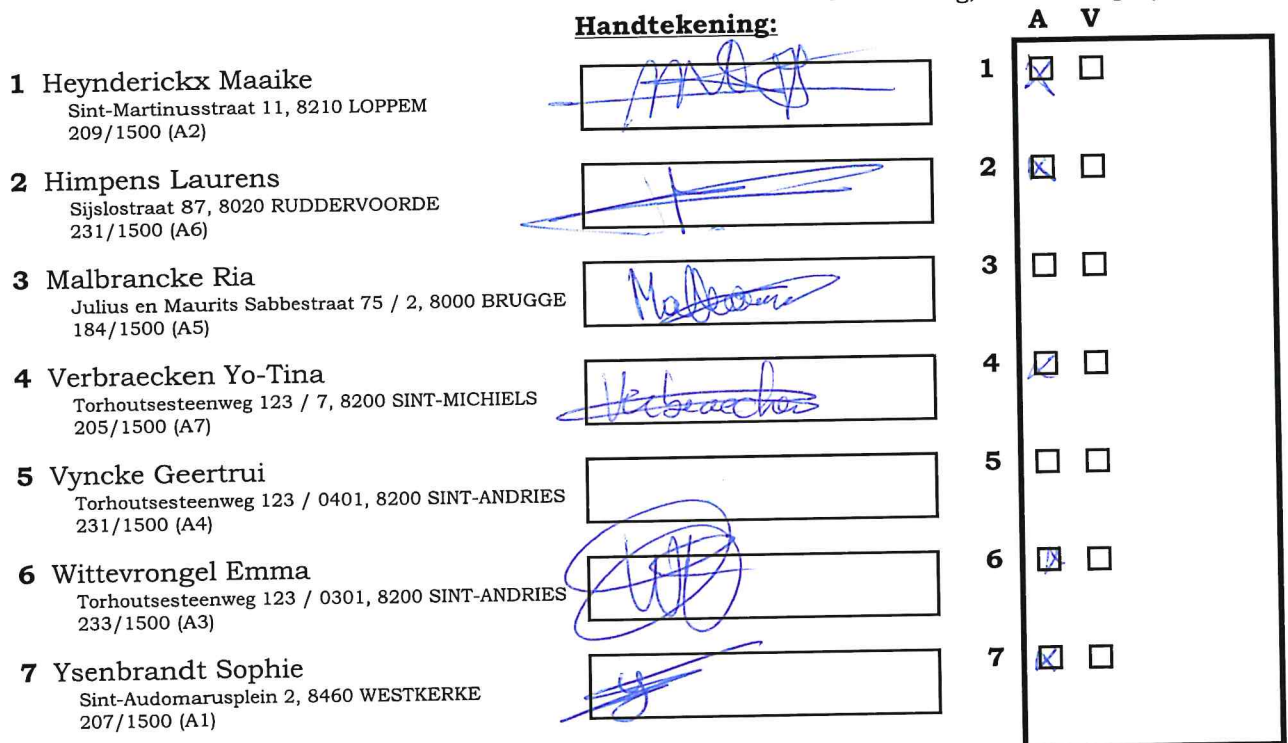 Handtekening:
A V
1 Heynderickx Maaike
Sint-Martinusstraat 11, 8210 LOPPEM
209/1500 (A2)
1
2 Himpens Laurens
Sijslostraat 87, 8020 RUDDERVOORDE
231/1500 (A6)
2
3 Malbrancke Ria
Julius en Maurits Sabbestraat 75 / 2, 8000 BRUGGE
184/1500 (A5)
3
4 Verbraecken Yo-Tina
Torhoutsesteenweg 123 / 7, 8200 SINT-MICHIELS
205/1500 (A7)
Verbraecken
4
5 Vyncke Geertrui
Torhoutsesteenweg 123 / 0401, 8200 SINT-ANDRIES
231/1500 (A4)
5
6 Wittevrongel Emma
Torhoutsesteenweg 123 / 0301, 8200 SINT-ANDRIES
233/1500 (A3)
6
7 Ysenbrandt Sophie
Sint-Audomarusplein 2, 8460 WESTKERKE
207/1500 (A1)
7